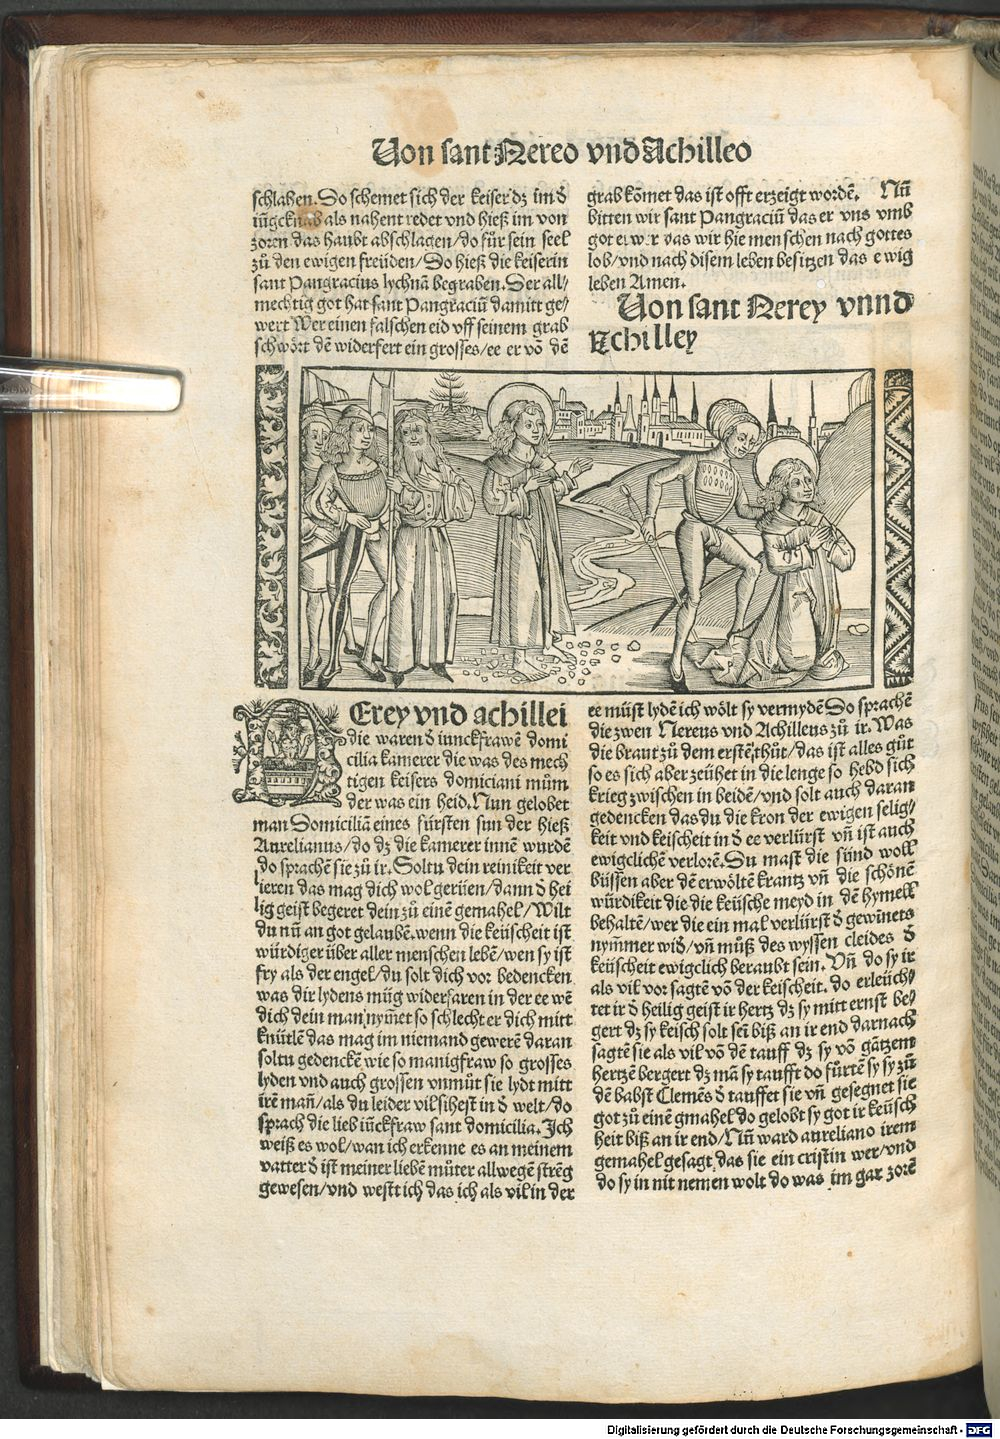 Von sant Nereo vnd Achilleo
schlahen. Do schemet sich der keiser dz im d̕
iũgcknab als nahent redet vnd hieß im von
zoren das haubt abschlagen/do fůr sein seel
zů den ewigen freüden/So hieß die keiserin
sant Pangracius lychnã begraben. Der all/
mechtig got hat sant Pangraciũ damitt ge/
wert Wer einen falschen eid vff seinem grab
schwört dẽ widerfert ein grosses/ee er võ dẽ
grab kõmet das ist offt erzeigt wordẽ. Nũ
bitten wir sant Pangraciũ das er vns vmb
got das wir hie menschen nach gottes
lob/vnd nach disem leben besitzen das ewig
leben Amen.
Von sant Nerey vnnd
Achilley
NErey vnd achillei
die waren d̕ iunckfrawẽ domi
cilia kamerer die was des mech
tigen keisers domiciani mům
der was ein heid. Nun gelobet
man Domiciliã eines fürsten sun der hieß
Aurelianus/do dz die kamerer innẽ wurdẽ
do sprachẽ sie zů ir. Soltu dein reinikeit ver
lieren das mag dich wol gerüen/dann d̕ hei
lig geist begeret dein zů einẽ gemahel/Wilt
du nũ an got gelaubẽ. wenn die keüscheit ist
würdiger über aller menschen lebẽ/wen sy ist
fry als der engel/du solt dich vor bedencken
was dir lydens müg widerfaren in der ee wẽ
dich dein man nym̃et so schlecht er dich mitt
knütlẽ das mag im niemand gewerẽ daran
soltu gedenckẽ wie so manig fraw so grosses
lyden vnd auch grossen vnmůt sie lydt mitt
irẽ mañ/als du leider vil sihest in d̕ welt/do
sprach die lieb iũckfraw sant domicilia. Ich
weiß es wol/wan ich erkenne es an meinem
vatter d̕ ist meiner liebẽ můter allwegẽ strẽg
gewesen/vnd westt ich das ich als vil in der
ee müst lydẽ ich wölt sy vermydẽ So sprachẽ
die zwen Nereus vnd Achilleus zů ir. Was
die braut zů dem erstẽ thůt/das ist alles gůt
so es sich aber zeühet in die lenge so hebd sich
krieg zwischen in beidẽ/vnd solt auch daran
gedencken das du die kron der ewigen selig/
keit vnd keischeit in d̕ ee verlürst vñ ist auch
ewigclichẽ verlorẽ. Du mast die sünd woll
büssen aber dẽ erwöltẽ krantz vñ die schönẽ
würdikeit die die keüsche meyd in dẽ hymell
behaltẽ/wer die ein mal verlürst d̕ gewinets
nymmer wid̕/vñ můß des wyssen cleides d̕
keüscheit ewigclich beraubt sein. Vñ do sy ir
als vil vor sagtẽ võ der keischeit. do erleüch/
tet ir d̕ heilig geist ir hertz dz sy mitt ernst be/
gert dz sy keisch solt sei biß an ir end darnach
sagtẽ sie als vil võ dẽ tauff dz sy võ gãtzem
hertzẽ bergert dz mã sy taufft do fürtẽ sy sy zů
dẽ babst Clemẽs d̕ tauffet sie vñ gesegnet sie
got zů einẽ gmahel do gelobt sy got ir keüsch
heit biß an ir end/Nũ ward aureliano irem
gemahel gesagt das sie ein cristin wer/vnd
do sy in nit nemen wolt do was im gar zorẽ
Digitalisierung gefördert durch die Deutsche Forschungsgemeinschaft - DFG